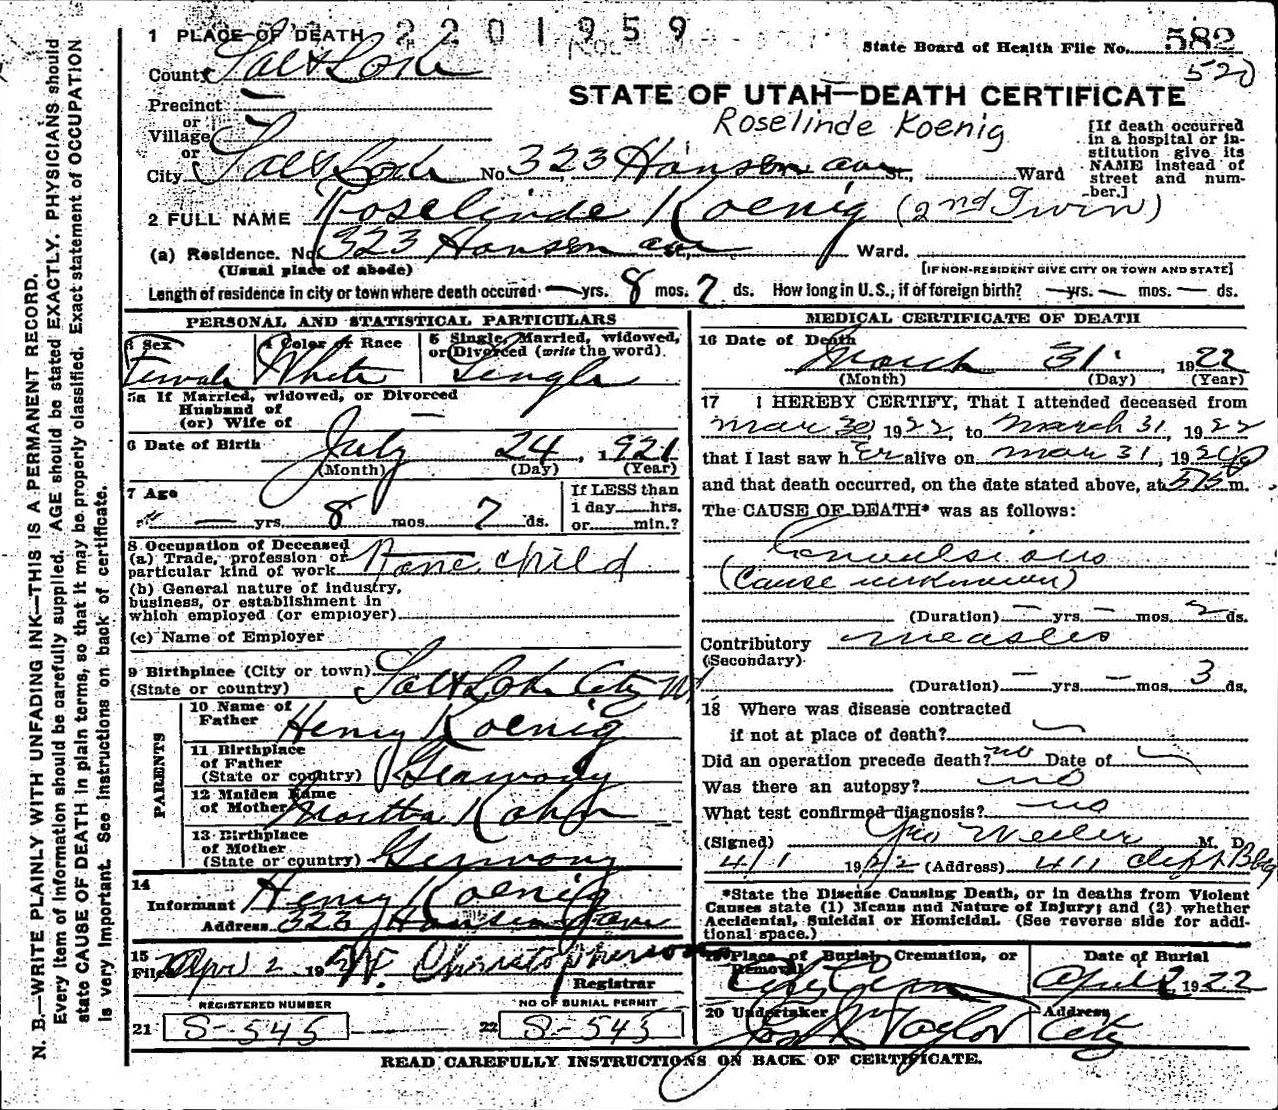 2 2 0 1 9 5 9
1 PLACE OF DEATH
State Board of Health File No. 582
520
County Salt Lake
STATE OF UTAH—DEATH CERTIFICATE
Precinct
Roselinde Koenig
or
Village
or
City Salt Lake No. 323 Hansen ave St., Ward
[If death occurred in a hospital or institution give its NAME instead of street and number.]
2 FULL NAME Roselinde Koenig (2nd Twin)
(a) Residence. No. 323 Hansen ave St., Ward.
(Usual place of abode) [IF NON-RESIDENT GIVE CITY OR TOWN AND STATE]
Length of residence in city or town where death occured — yrs. 8 mos. 7 ds. How long in U. S., if of foreign birth? — yrs. — mos. — ds.
PERSONAL AND STATISTICAL PARTICULARS
3 Sex 4 Color or Race 5 Single, Married, widowed,
or Divorced (write the word).
Female White Single
5a If Married, widowed, or Divorced
Husband of
(or) Wife of —
6 Date of Birth July 24, 1921
(Month) (Day) (Year)
7 Age If LESS than
1 day hrs.
— yrs. 8 mos. 7 ds. or min.?
8 Occupation of Deceased
(a) Trade, profession or
particular kind of work None child
(b) General nature of industry,
business, or establishment in
which employed (or employer)
(c) Name of Employer
9 Birthplace (City or town) Salt Lake City Ut
(State or country)
PARENTS
10 Name of
Father Henry Koenig
11 Birthplace
of Father
(State or country) Germany
12 Maiden Name
of Mother Martha
13 Birthplace
of Mother
(State or country) Germany
14
Informant Henry Koenig
Address 323 Hansen ave
15
Filed Apr 2 19 Christopherson
Registrar
REGISTERED NUMBER NO OF BURIAL PERMIT
21 S-545 22 S-545
MEDICAL CERTIFICATE OF DEATH
16 Date of Death
March 31, 1922
(Month) (Day) (Year)
17 I HEREBY CERTIFY, That I attended deceased from
Mar 30 1922, to March 31, 1922
that I last saw her alive on Mar 31, 19
and that death occurred, on the date stated above, at 515 m.
The CAUSE OF DEATH* was as follows:
Convulsions
(Cause unknown)
(Duration) — yrs — mos. 2 ds.
Contributory measles
(Secondary)
(Duration) — yrs — mos 3 ds.
18 Where was disease contracted
if not at place of death?
Did an operation precede death? no Date of
Was there an autopsy? no
What test confirmed diagnosis? no
(Signed) M. D.
4/1 1922 (Address) 411 Clift Bldg
*State the Disease Causing Death, or in deaths from Violent
Causes state (1) Means and Nature of Injury; and (2) whether
Accidental, Suicidal or Homicidal. (See reverse side for addi-
tional space.)
19 Place of Burial, Cremation, or
Removal
City Cem
Date of Burial
April 2 1922
20 Undertaker Address
Taylor City
READ CAREFULLY INSTRUCTIONS ON BACK OF CERTIFICATE.
N. B.—WRITE PLAINLY WITH UNFADING INK—THIS IS A PERMANENT RECORD.
Every item of information should be carefully supplied. AGE should be stated EXACTLY. PHYSICIANS should
state CAUSE OF DEATH in plain terms, so that it may be properly classified. Exact statement of OCCUPATION
is very important. See instructions on back of certificate.